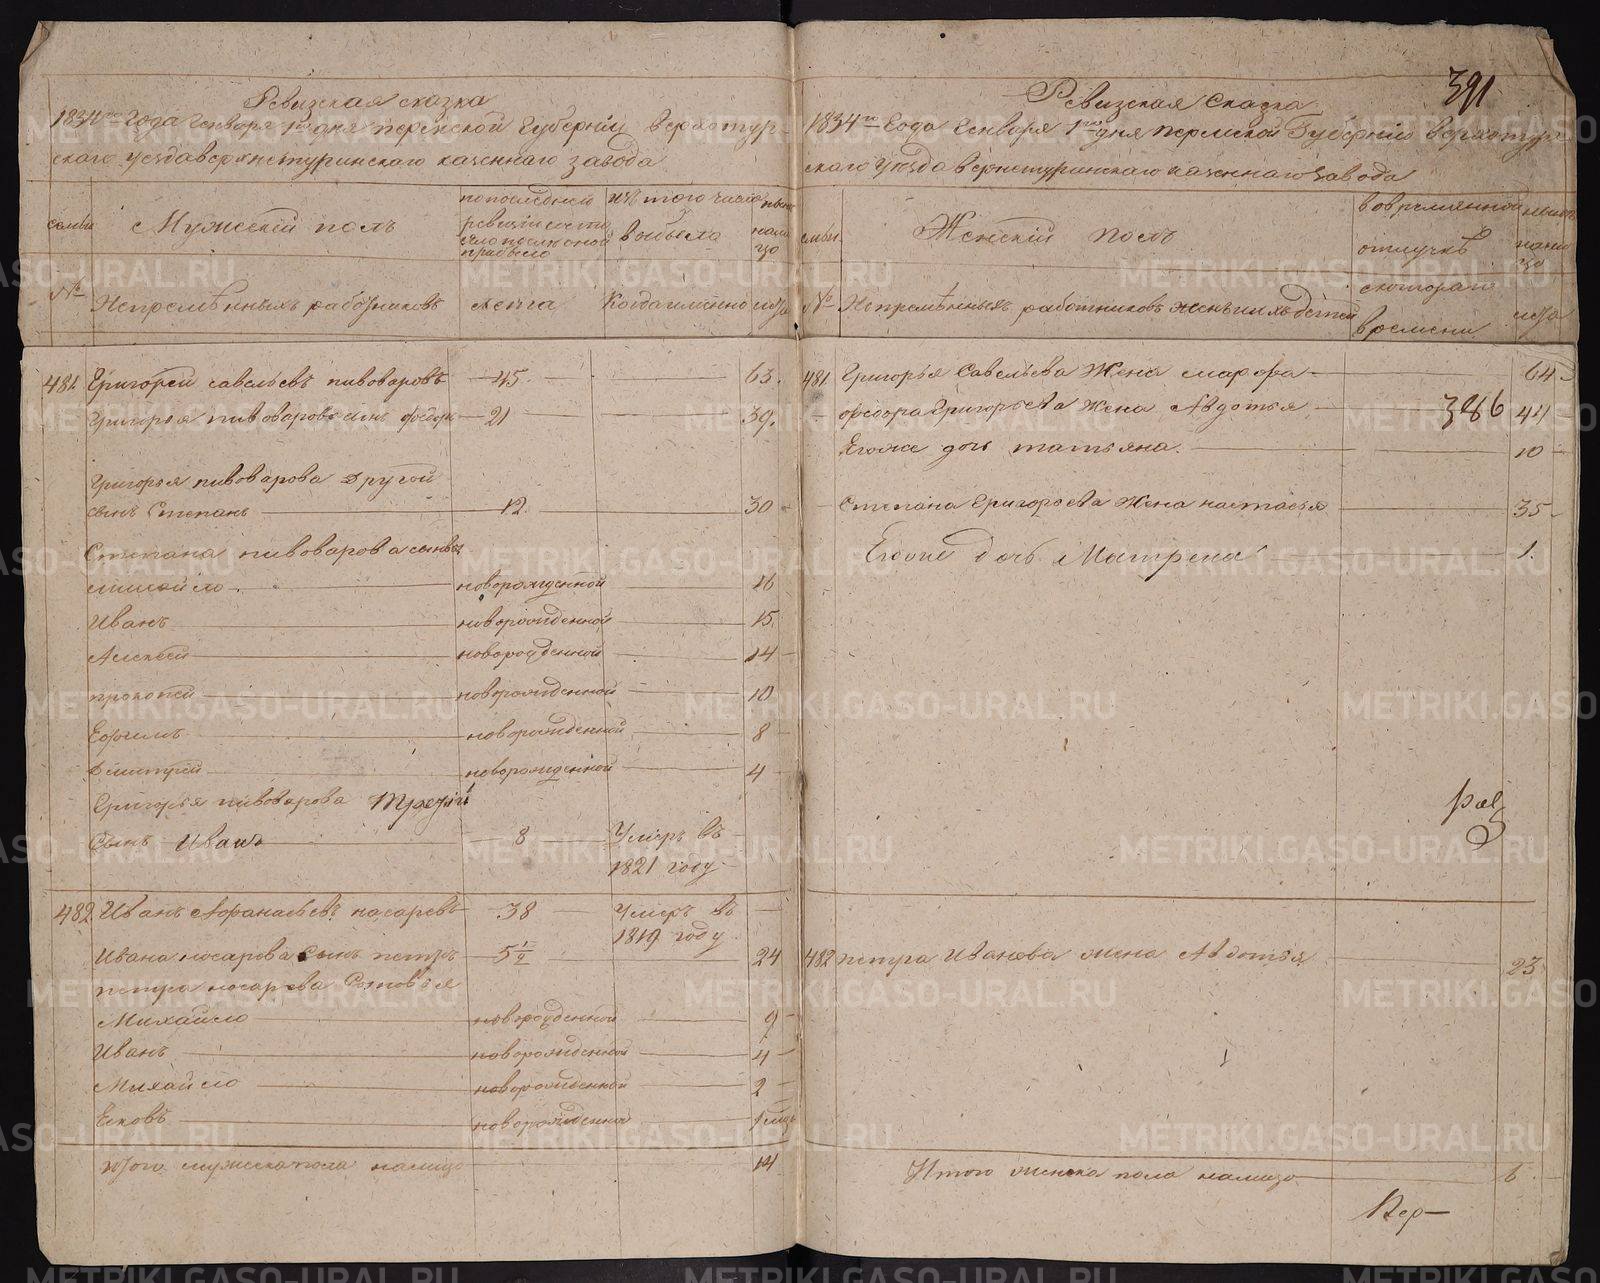 Ревизская сказка
1834го Года Генваря 1го дня пермской Губернии верхотур-
скаго уезда верхнетуринскаго казеннаго завода
семьи
Мужеский полъ
по последней
ревизии состо
яло и после оной
прибыло
изъ того числа
выбыло
ныне
нали
цо
№
Непременныхъ работниковъ
лета
Когда именно
лета
481. Григорей савельевъ пивоваровъ 45. 63.
Григорья пивоварова сынъ федоръ 21 39.
Григорья пивоварова Другой
сынъ Степанъ 12. 30
Степана пивоварова сыновья
михайло новорожденной 16
Иванъ новорожденной 15
Алексей новорожденной 14
прокопей новорожденной 10
Ефимъ новорожденной 8
Дмитрей новорожденной 4
Григорья пивоварова третій
Сынъ Иванъ 8 Умеръ въ
1821 году
482. Иванъ Афанасьевъ носаревъ 38 Умеръ въ
1819 году
Ивана носарова сынъ петръ 5 24
петра носарева Сыновья
Михайло новорожденной 9
Иванъ новорожденной 4
Михайло новорожденной 2
Яковъ новорожденной
итого мужеска пола налицо 14
391
Ревизская Сказка
1834го Года Генваря 1го дня пермской Губерніи верхотур-
скаго Уезда верхнетуринскаго казеннаго завода
семьи.
Женский полъ
во временной
отлучке
с котораго
времени
ныне
нали
цо
лета
№
Непременныхъ работниковъ жены и ихъ дети
481. Григорья Савельева Жена марфа 64
федора Григорьева Жена Авдотья 386 44
Егоже дочь татьяна. 10
Степана Григорьева Жена настасья 35
Егоже дочь Матрена 1.
482 петра Иванова жена Авдотья 23
Итого женска пола налицо 6